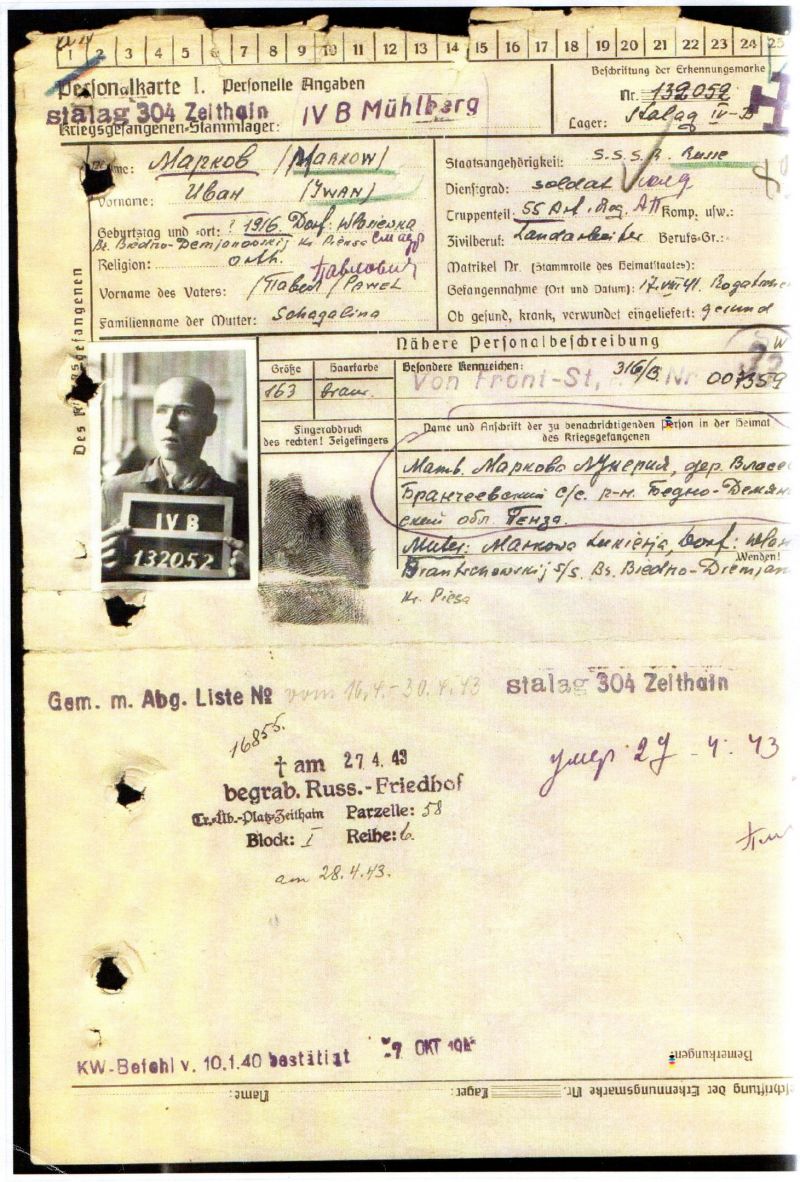 1 2 3 4 5 6 7 8 9 10 11 12 13 14 15 16 17 18 19 20 21 22 23 24 25
Personalkarte I. Personelle Angaben
Beschriftung der Erkennungsmarke
stalag 304 Zeithain IV B Mühlberg
Nr. 132052
Kriegsgefangenen-Stammlager:
Lager: Stalag IV-B
Des Kriegsgefangenen
Name: Марков (Markow)
Staatsangehörigkeit: S.S.S.R. Russe
Vorname: Иван (Iwan)
Dienstgrad: soldat
Truppenteil: 55 Art. Reg. Komp. usw.:
Geburtstag und -ort: ? 1916 Dorf:
Zivilberuf: Landarbeiter Berufs-Gr.:
Religion: orth.
Павлович
Matrikel Nr. (Stammrolle des Heimatstaates):
Vorname des Vaters: /Павел/ Pawel
Gefangennahme (Ort und Datum): 17.VIII 41.
Familienname der Mutter: Schagalina
Ob gesund, krank, verwundet eingeliefert: gesund
Nähere Personalbeschreibung
Größe
Haarfarbe
Besondere Kennzeichen: 316/B.
163
braun.
Von Front-St, Nr 007359
Fingerabdruck
des rechten! Zeigefingers
Name und Anschrift der zu benachrichtigenden Person in der Heimat
des Kriegsgefangenen
Мать. Маркова Лукерия, дер.
с/с. р-н. Бедно-Демян
ский обл. Пенза.
Muter: Markowa Lukierja, Dorf:
Wenden!
Brantschowskij s/s. Bs. Biedno-Diemjan
IV B
132052
Gem. m. Abg. Liste № vom 16.4.-30.4.43 stalag 304 Zeithain
16855.
† am 27 4. 43
умер 27-4. 43
begrab. Russ.-Friedhof
Tr.-Üb.-Platz Zeithain Parzelle: 58
Block: I Reihe: 6.
am 28.4.43.
KW-Befehl v. 10.1.40 bestätigt
OKT
Bemerkungen:
Beschriftung der Erkennungsmarke Nr. Lager: Name: